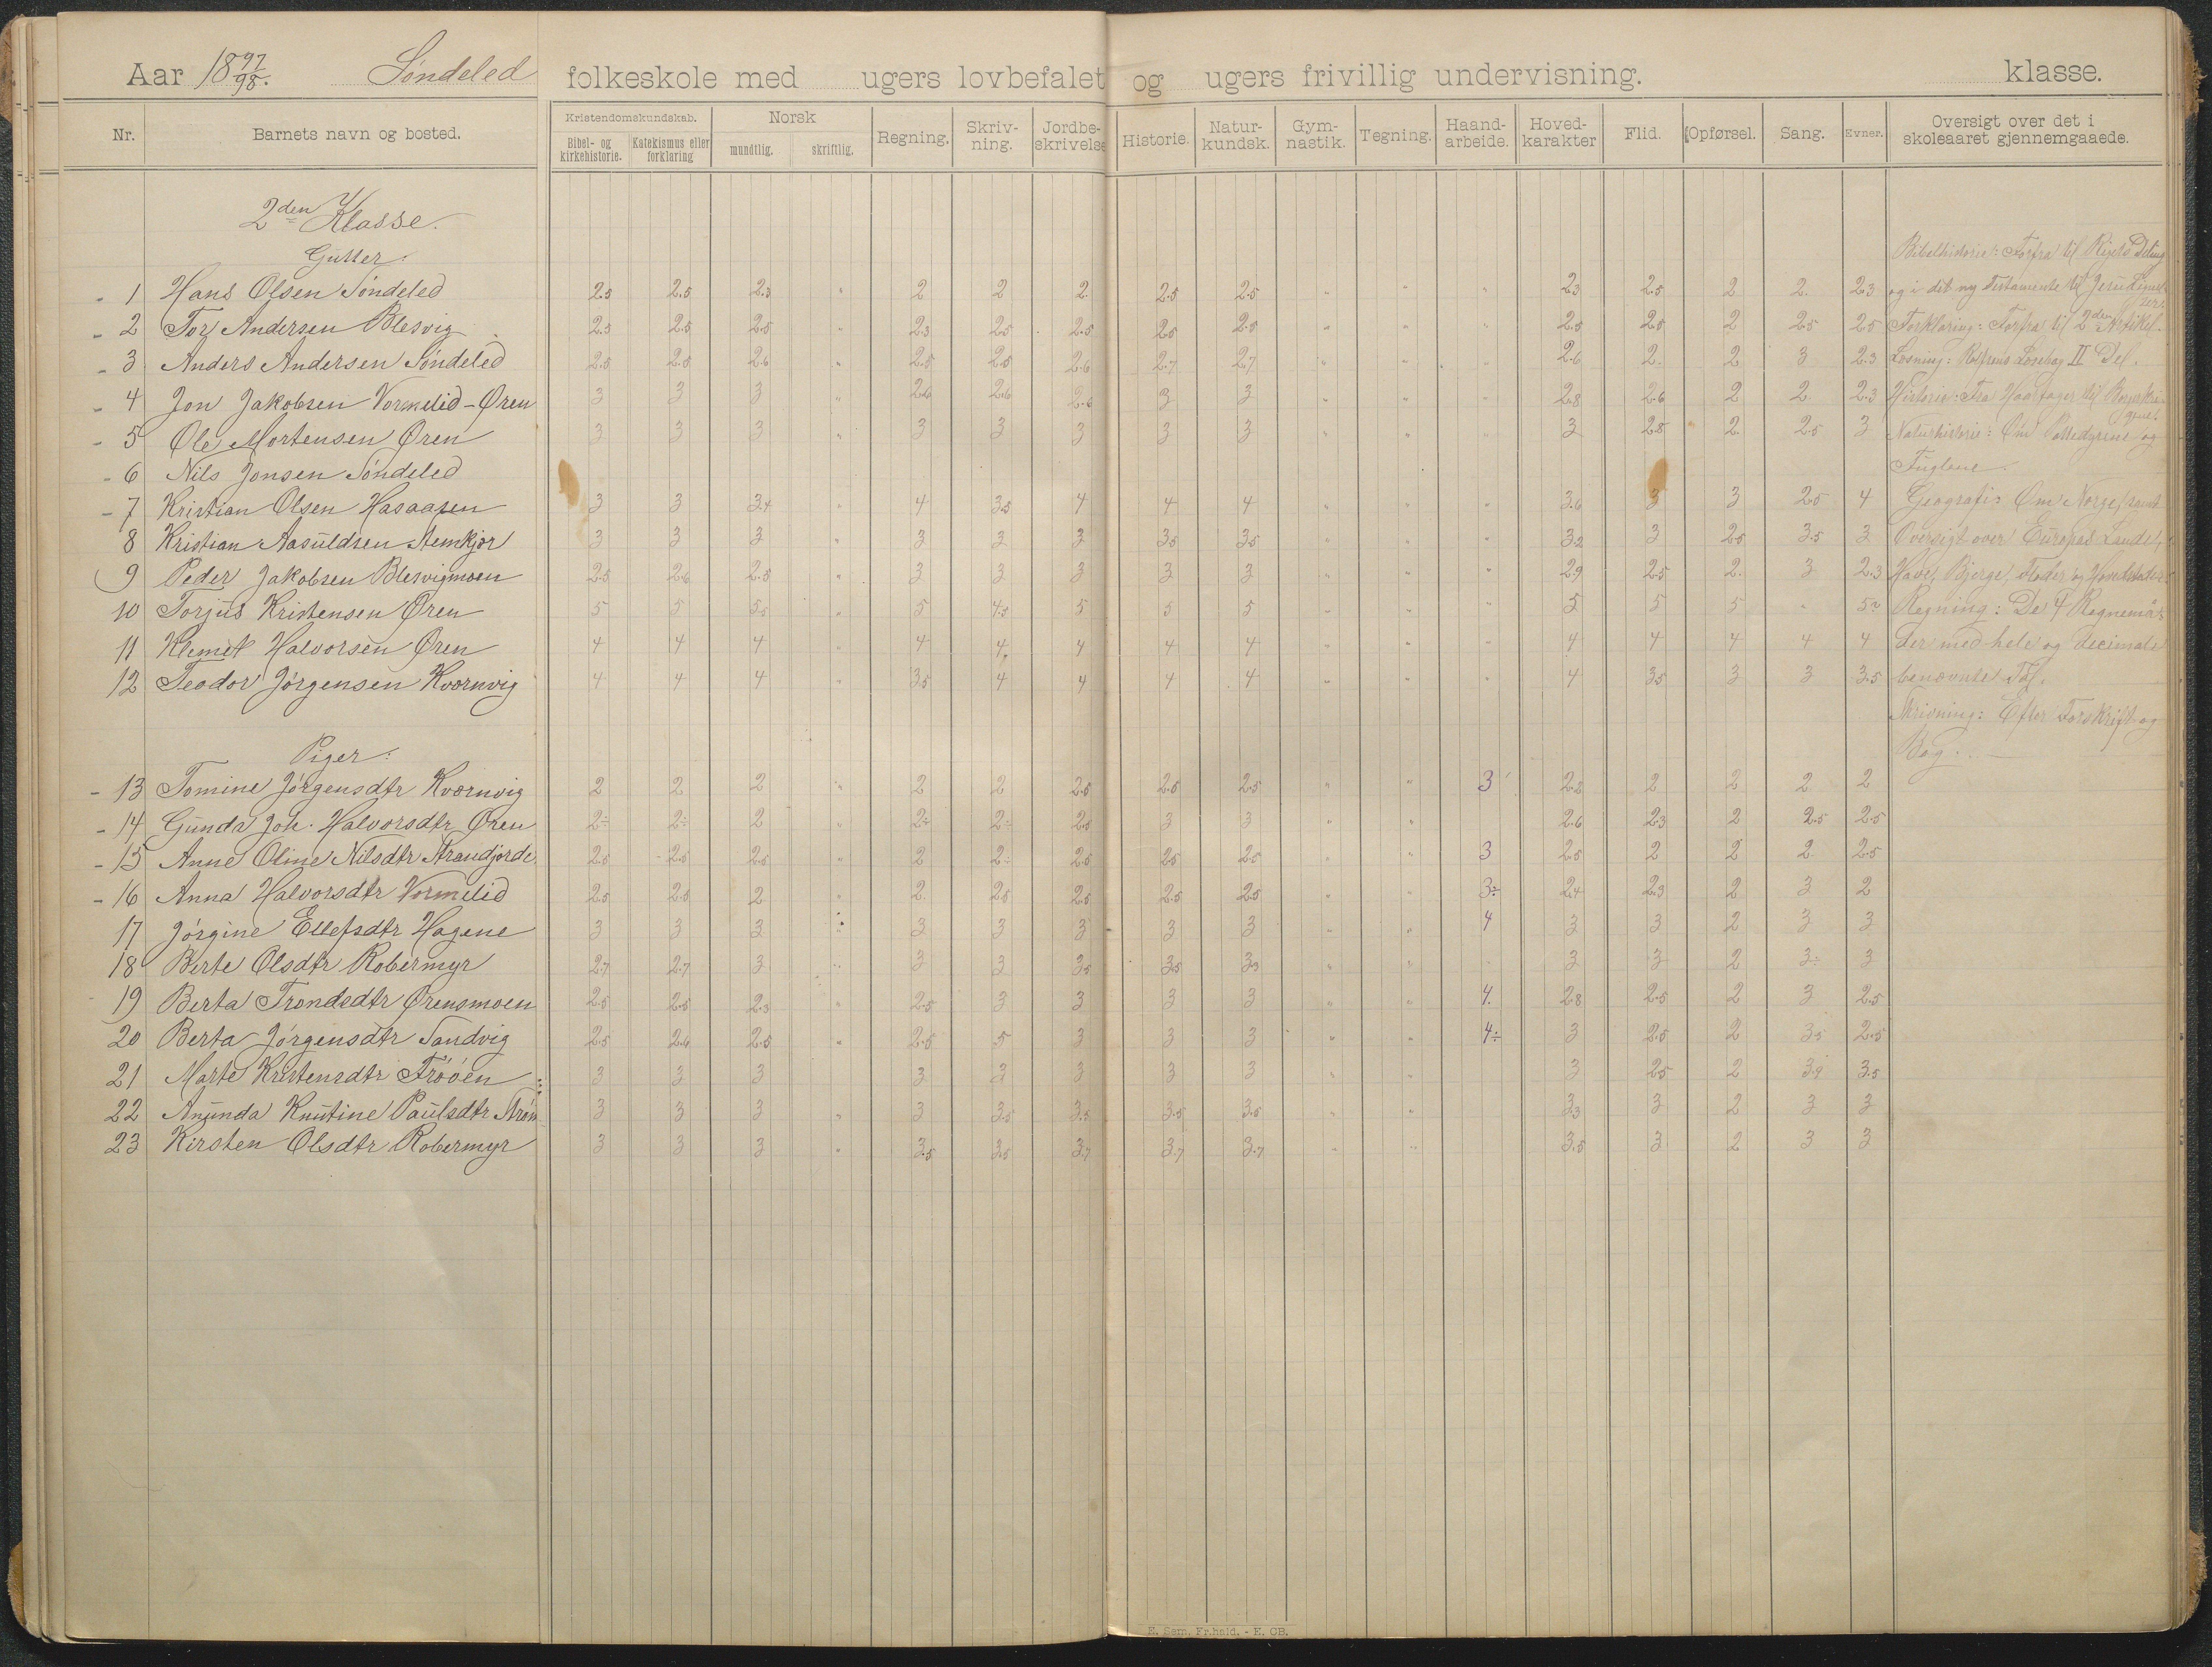 Aar 18 97/98. Søndeled folkeskole med ugers lovbefalet og ugers frivillig undervisning. klasse.
Nr. Barnets navn og bosted. Kristendomskundskab. Bibel- og kirkehistorie. Katekismus eller forklaring Norsk mundtlig. skriftlig. Regning. Skriv-ning. Jordbe-skrivelse Historie. Natur-kundsk. Gym-nastik. Tegning. Haand-arbeide. Hoved-karakter Flid. Opførsel. Sang. Evner. Oversigt over det i skoleaaret gjennemgaaede.
2den Klasse.
Gutter.
1 Hans Olsen Søndeled 2.5 2.5 2.3 " 2 2 2 2.5 2.5 " " " 2.3 2.5 2 2. 2.3
2 Tor Andersen Blesvig 2.5 2.5 2.5 " 2.3 2.5 2.5 2.5 2.5 " " " 2.5 2.5 2 2.5 2.5
3 Anders Andersen Søndeled 2.5 2.5 2.6 " 2.5 2.5 2.6 2.7 2.7 " " " 2.6 2. 2 3 2.3
4 Jon Jakobsen Vormelid-Øren 3 3 3 " 2.6 2.6 2.6 3 3 " " " 2.8 2.6 2 2. 2.3
5 Ole Mortensen Øren 3 3 3 " 3 3 3 3 3 " " " 3 2.8 2. 2.5 3
6 Nils Jonsen Søndeled
7 Kristian Olsen Hasaasen 3 3 3.4 " 4 3.5 4 4 4 " " " 3.6 3 3 2.5 4
8 Kristian Aasuldsen Stemkjær 3 3 3 " 3 3 3 3.5 3.5 " " " 3.2 3 2.5 3.5 3
9 Peder Jakobsen Blesvigmoen 2.5 2.6 2.5 " 3 3 3 3 3 " " " 2.9 2.5 2. 3 2.3
10 Torjus Kristensen Øren 5 5 5.5 " 5 4.5 5 5 5 " " " 5 5 5 " 5
11 Klemet Halvorsen Øren 4 4 4 " 4 4. 4 4 4 " " " 4 4 4 4 4
12 Teodor Jørgensen Kværnvig 4 4 4 " 3.5 4 4 4 4 " " " 4 3.5 3 3 3.5
Piger:
13 Tomine Jørgensdtr Kværnvig 2 2 2 " 2 2 2.5 2.5 2.5 " " 3 2.2 2 2 2 2
14 Gunda Joh. Halvorsdtr Øren 2÷ 2÷ 2 " 2÷ 2÷ 2.5 3 3 " " 2.6 2.3 2 2.5 2.5
15 Anne Oline Nilsdtr Strandjorde 2.5 2.5 2.5 " 2 2÷ 2.5 2.5 2.5 " " 3 2.5 2 2 2. 2.5
16 Anna Halvorsdtr Vormelid 2.5 2.5 2 " 2. 2.5 2.5 2.5 2.5 " " 3÷ 2.4 2.3 2 3 2
17 Jørgine Ellefsdtr Hagene 3 3 3 " 3 3 3 3 3 " " 4 3 3 2 3 3
18 Berte Olsdtr Robermyr 2.7 2.7 3 " 3 3 3.5 3.5 3.5 " " 3 3 2 3÷ 3
19 Berta Trondsdtr Ørensmoen 2.5 2.5 2.3 " 2.5 3 3 3 3 " " 4. 2.8 2.5 2 3 2.5
20 Berta Jørgensdtr Sandvig 2.5 2.6 2.5 " 2.5 5 3 3 3 " " 4÷ 3 2.5 2 3.5 2.5
21 Marte Kristensdtr Frøøen 3 3 3 3 3 3 3 3 " " 3 2.5 2 3.9 3.5
22 Anunda Knutine Paulsdtr 3 3 3 " 3 3.5 3.5 3.5 3.5 " " 3.3 3 2 3 3
23 Kirsten Olsdtr Robermyr 3 3 3 " 3.5 3.5 3.7 3.7 3.7 " " 3.5 3 2 3 3
Bibelhistorie: Forfra til Rigets Deling
og i det ny Testamente til Jesu Lignel-
ser.
Forklaring: Forfra til 2den Artikel.
Læsning: Rolfsens Læsebog II Del.
Historie: Fra Haarfager til Borgerkri-
gene.
Naturhistorie: Om Pattedyrene og
Fuglene.
Geografi: Om Norge, samt
Oversigt over Europas Lande,
Have, Bjerge, Floder og Hovedstæder.
Regning: De 4 Regnemaa-
der med hele og decimale
benævnte Tal.
Skrivning: Efter Forskrift og
Bog.
E. Sem, Fr.hald. - E. CB.